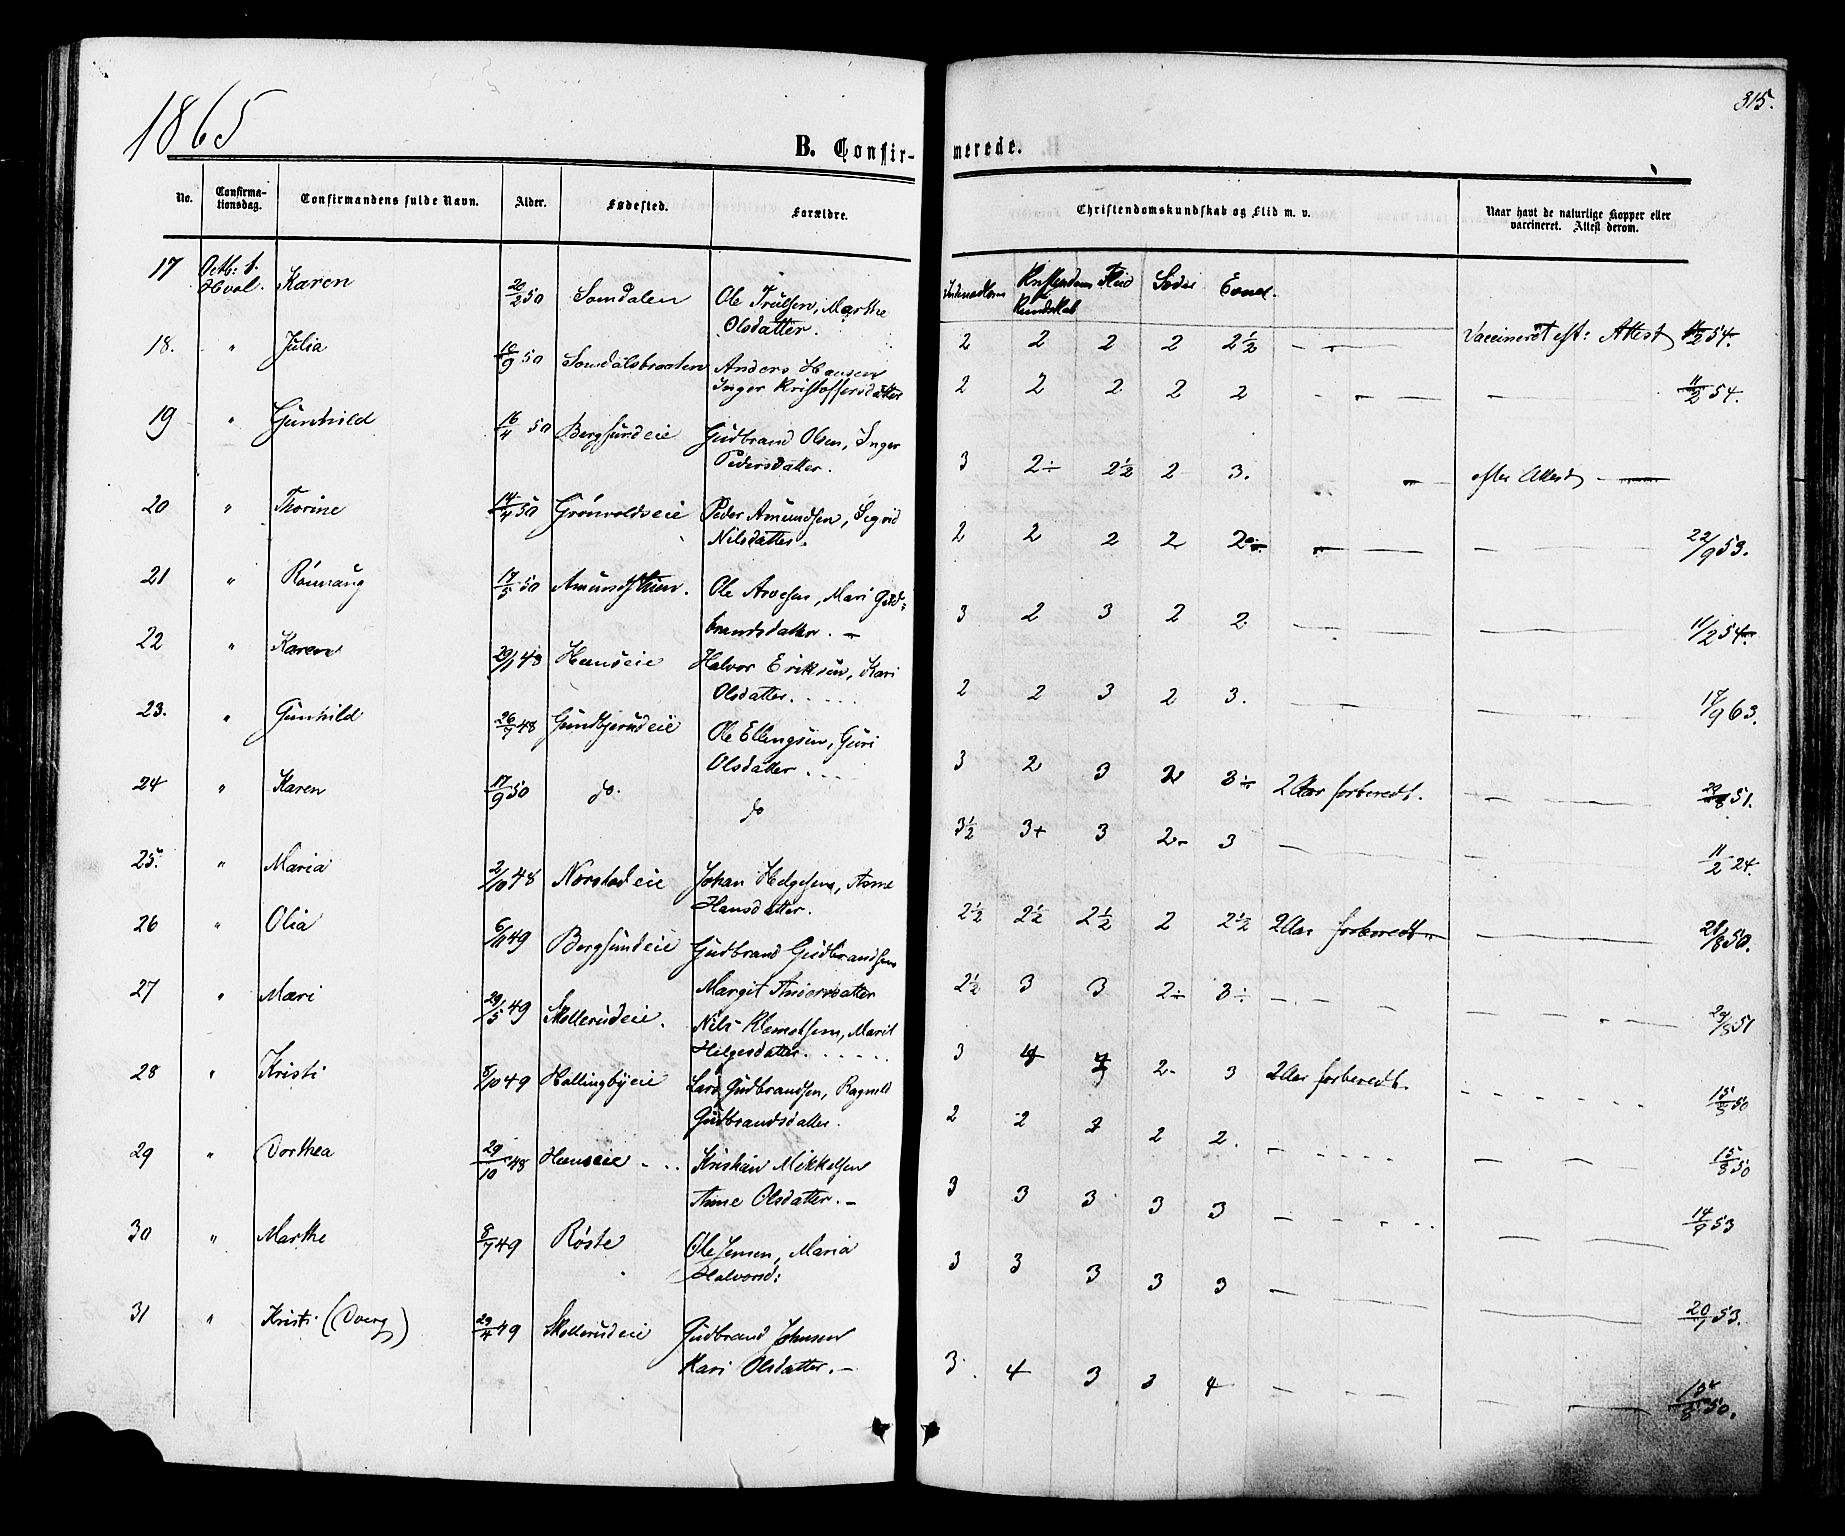 1865
315.
B. Confir-
merede.
No.
Confirma-
tionsdag.
Confirmandens fulde Navn.
Alder.
Fødested.
Forældre.
Christendomskundskab og Flid m. v.
Naar havt de naturlige Kopper eller
vaccineret. Attest derom.
Kristendoms Flid Sæder Evner.
Kundskab
17 Octb: 1. Karen 20/2 50 Somdalen Ole Trulsen, Marthe
Hval. Olsdatter.
2 2 2 2 2½ Vaccineret eft: Attest 11/2 54.
18. " Julia 10/9 50 Somdalsbraaten Anders Hansen
Inger Kristoffersdatter
2 2 2 2 2 11/2 54.
19 " Gunhild 16/4 50 Bergsundeie Gudbrand Olsen, Inger
Pedersdatter.
3 2÷ 2½ 2 3. efter Attest
20 " Thorine 14/4 50 Grönvoldseie Peder Amundsen, Sigrid
Nilsdatter.
2 2 2 2 2 22/9 53.
21 " Rönnaug 17/5 50 Ole Arvesen, Mari Guld-
brandsdatter.
3 2 3 2 2 11/2 54.
22 " Karen 29/1 48 Hænseie Halvor Eriksen, Kari
Olsdatter.
2 2 3 2 3. 17/9 63.
23. " Gunhild 26/7 48 Gundbjerudeie Ole Ellingsen, Guri
Olsdatter
3 2 3 2 3÷ 2 Aar forberedt. 29/8 51.
24 " Karen 17/9 50 do. do
3½ 3+ 3 2- 3 11/2 24.
25. " Maria 2/10 48 Norstadeie Johan Helgesen, Anne
Hansdatter.
2½ 2½ 2½ 2 2½ 2 Aar forberedt. 28/8 50.
26 " Olia 6/11 49 Bergsundeie Gudbrand Gudbrandsen
Margit Andersdatter
2½ 3 3 2÷ 3÷ 29/8 51
27 " Mari 29/5 49 Skollerudeie. Nils Klemetsen, Marit
Helgesdatter.
3 4 2- 3 2 Aar forberedt. 15/8 50
28 " Kristi 8/10 49 Hallingbyeie Lars Gudbrandsen, Ragnild
Gudbrandsdatter.
2 2 2 2 2. 15/8 50
29 " Dorthea 29/10 48 Hænseie Kristian Mikkelsen
Anne Olsdatter.
3 3 3 3 3 14/9 53
30 " Marthe 8/7 49 Røste Ole Jensen, Maria
Halvorsd:
3 3 3 3 3 20/9 53.
31 " Kristi (Dverg) 29/4 49 Skollerudeie Gudbrand Johnsen
Kari Olsdatter.
3. 4 3 3 4 15/8 50.